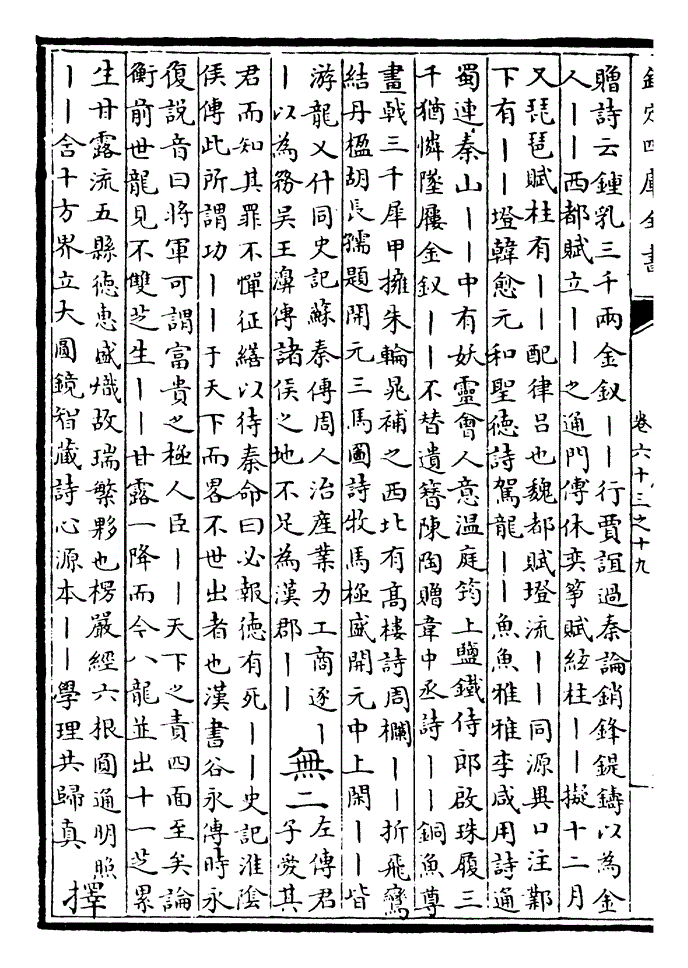 欽定四庫全書
卷六十三之十九
贈詩云鍾乳三千兩金釵丨丨行賈誼過秦論銷鋒鍉鑄以為金
人丨丨西都賦立丨丨之通門傅休奕箏賦絃柱丨丨擬十二月
又琵琶賦柱有丨丨配律呂也魏都賦墱流丨丨同源異口注鄴
下有丨丨墱韓愈元和聖德詩駕龍丨丨魚魚雅雅李咸用詩通
蜀連秦山丨丨中有妖靈會人意温庭筠上鹽鐵侍郎啟珠履三
千猶憐墜屨金釵丨丨不替遺簪陳陶贈韋中丞詩丨丨銅魚尊
畫戟三千犀甲擁朱輪晁補之西北有髙樓詩周欄丨丨折飛鸞
結丹楹胡長孺題開元三馬圖詩牧馬極盛開元中上閑丨丨皆
游龍又什同史記蘇秦傳周人治産業力工商逐丨
丨以為務吳王濞傳諸侯之地不足為漢郡丨丨
無二
左傳君
子愛其
君而知其罪不憚征繕以待秦命曰必報德有死丨丨史記淮陰
侯傳此所謂功丨丨于天下而畧不世出者也漢書谷永傳時永
復説音曰將軍可謂富貴之極人臣丨丨天下之責四面至矣論
衡前世龍見不雙芝生丨丨甘露一降而今八龍並出十一芝累
生甘露流五縣德恵盛熾故瑞繁夥也楞嚴經六根圓通明照
丨丨含十方界立大圓鏡智藏詩心源本丨丨學理共歸真
擇